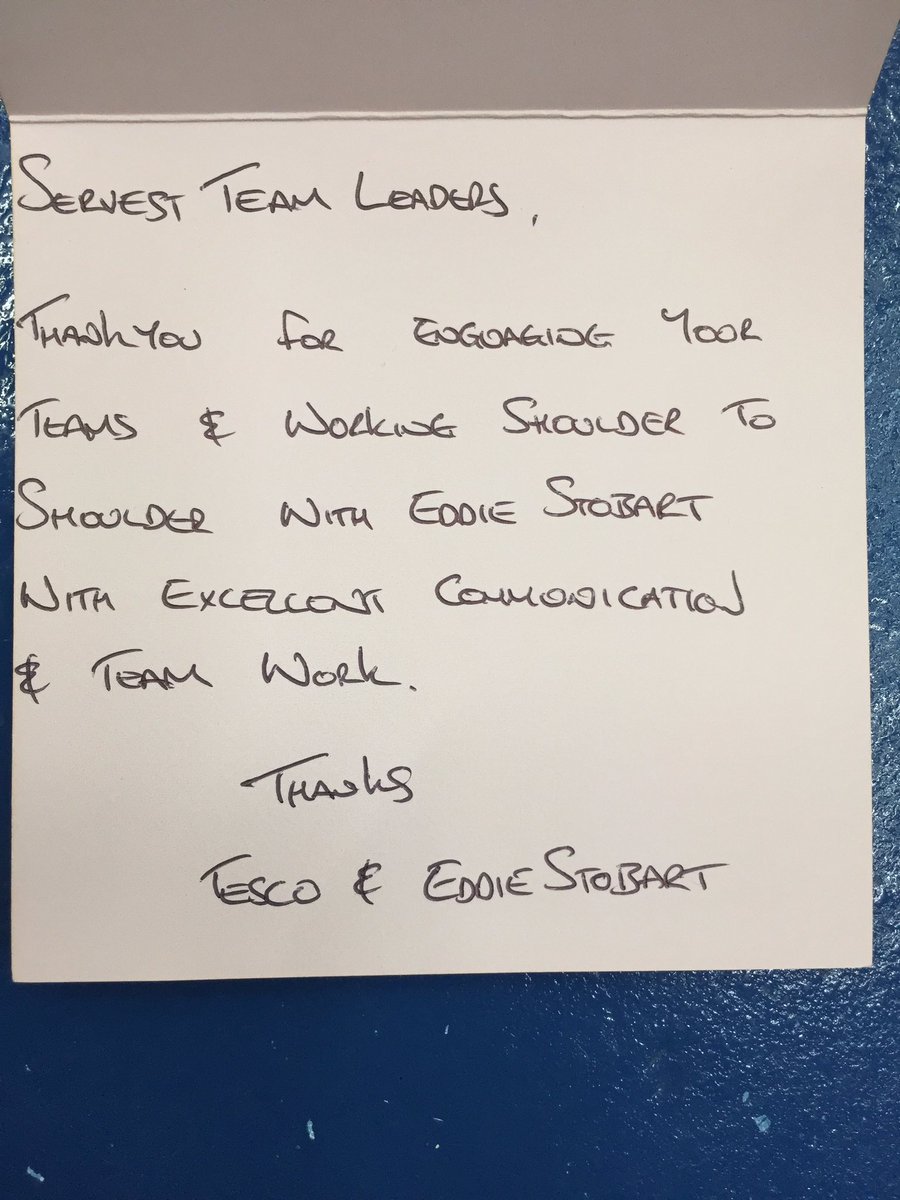 SERVEST TEAM LEADERS,
THANKYOU FOR ENGUAGING YOUR
TEAMS & WORKING SHOULDER TO
SHOULDER WITH EDDIE STOBART
WITH EXCELLENT COMMUNICATION
& TEAM WORK.
THANKS
TESCO & EDDIE STOBART